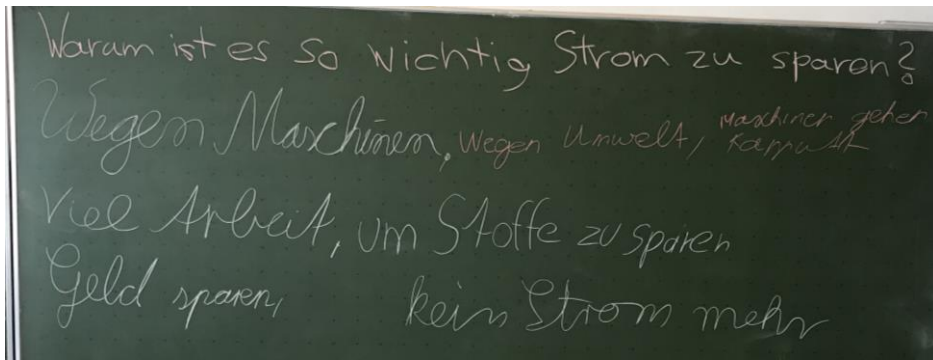 Warum ist es so wichtig Strom zu sparen?
Wegen Maschinen, Wegen Umwelt, Maschinen gehen
kapputt
Viel Arbeit, um Stoffe zu sparen
Geld sparen, kein Strom mehr